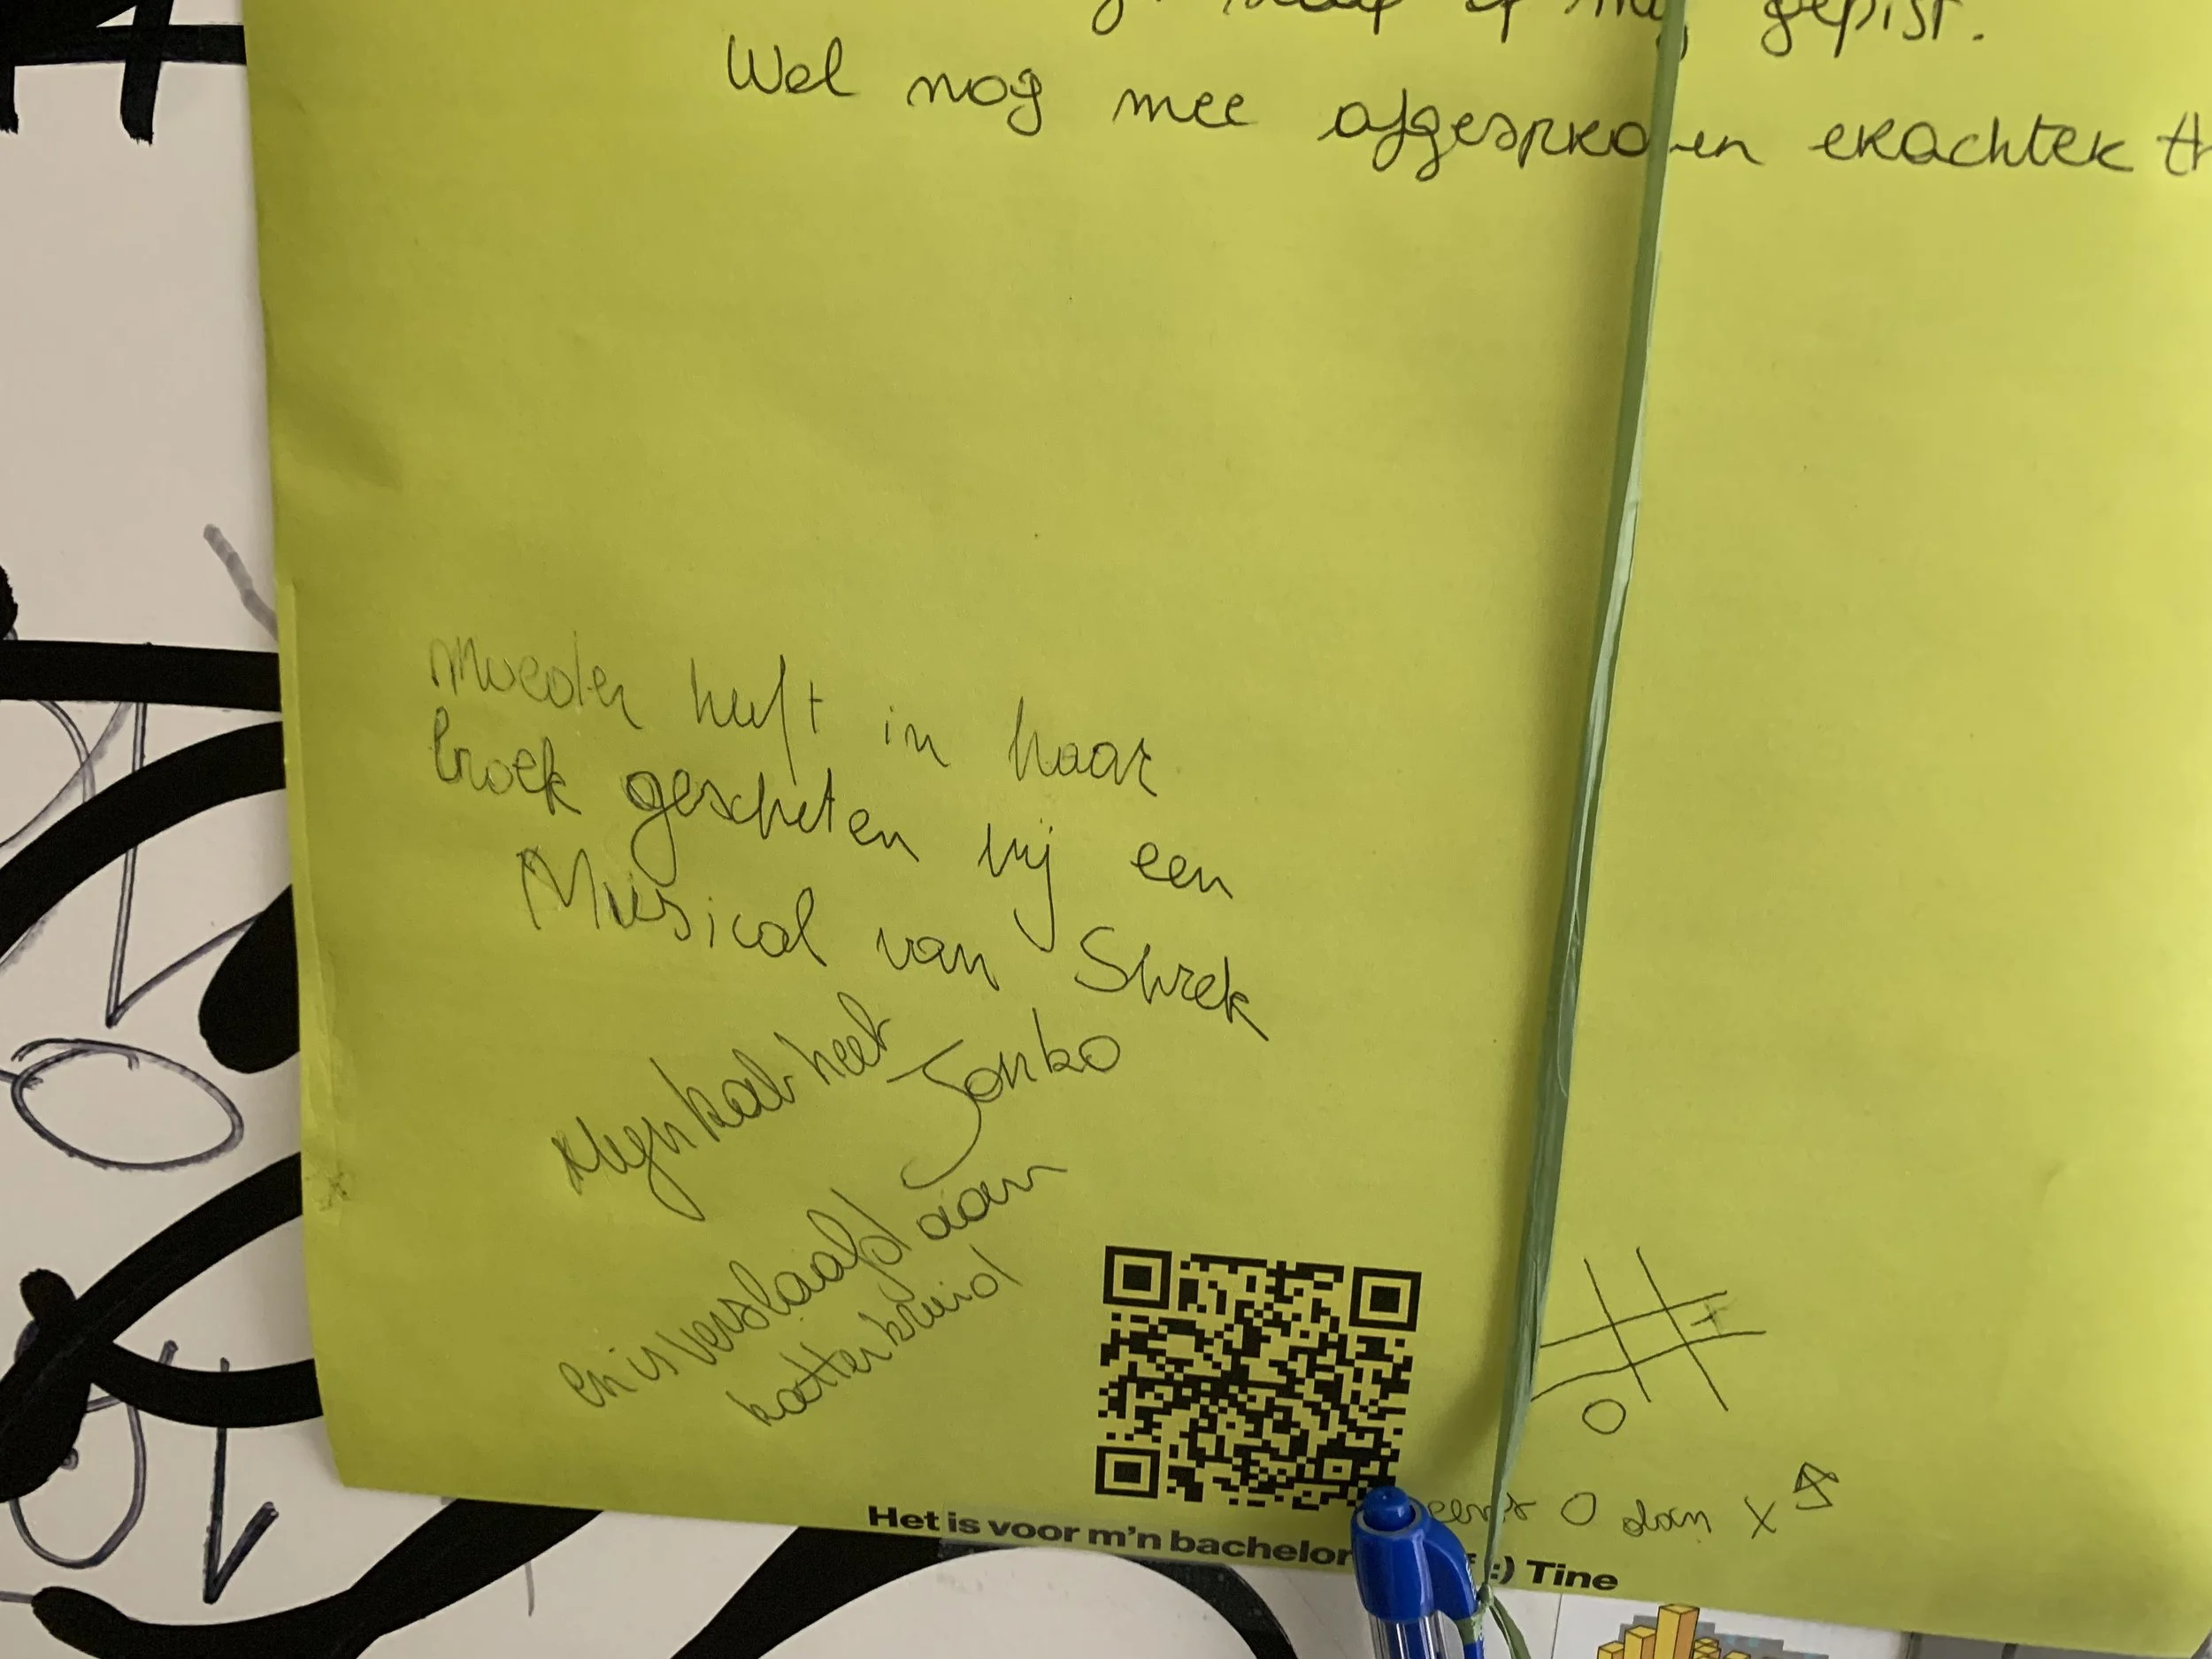 gepist.
Wel nog mee afgesproken erachter
Moeder heeft in haar
broek gescheten bij een
Musical van Shrek
Mijn kat heet
Jonko
en is verslaafd aan
kattenkruid
eerst O dan X
Het is voor m'n bachelor :) Tine